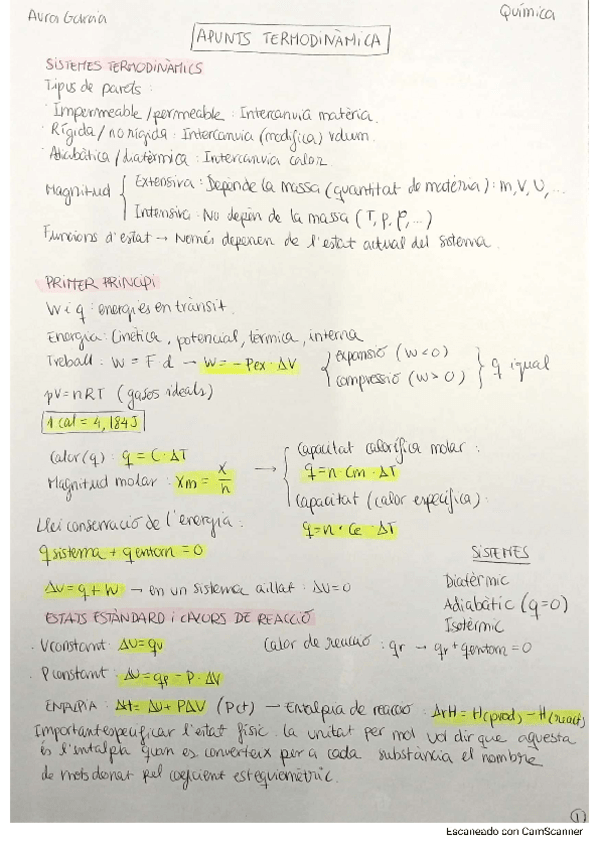 Aura Garcia
Química
APUNTS TERMODINÀMICA
SISTEMES TERMODINÀMICS
Tipus de parets:
· Impermeable/permeable: Intercanvia matèria.
· Rígida/no rígida: Intercanvia (modifica) volum.
· Adiabàtica/diatèrmica: Intercanvia calor
Magnitud { Extensiva: Depende la massa (quantitat de matèria): m, V, U, ...
Intensiva: No depèn de la massa (T, p, ρ, ...)
Funcions d'estat → Només depenen de l'estat actual del sistema.
PRIMER PRINCIPI
W i q: energies en trànsit.
Energia: Cinètica, potencial, tèrmica, interna
Treball: W = F·d → W = - Pex · ΔV { expansió (W<0) compressió (W>0) } q igual
pV = nRT (gasos ideals)
1 cal = 4,184 J
Calor (q): q = C·ΔT
Magnitud molar: Xm = X/n
→ { Capacitat calorífica molar:
q = n · Cm · ΔT
Capacitat (calor específica):
q = n · Ce · ΔT
Llei conservació de l'energia:
q sistema + q entorn = 0
ΔU = q + W → en un sistema aïllat: ΔU = 0
SISTEMES
Diatèrmic
Adiabàtic (q=0)
Isotèrmic
ESTATS ESTÀNDARD i CALORS DE REACCIÓ
· V constant: ΔU = qv
Calor de reacció: qr → qr + qentorn = 0
· P constant: ΔU = qp - P·ΔV
ENTALPIA: ΔH = ΔU + PΔV (Pct) → Entalpia de reacció: ΔrH = H(prod) - H(react)
Important especificar l'estat físic. La unitat per mol vol dir que aquesta
és l'entalpia quan es converteix per a cada substància el nombre
de mols donat pel coeficient estequiomètric.
1
Escaneado con CamScanner